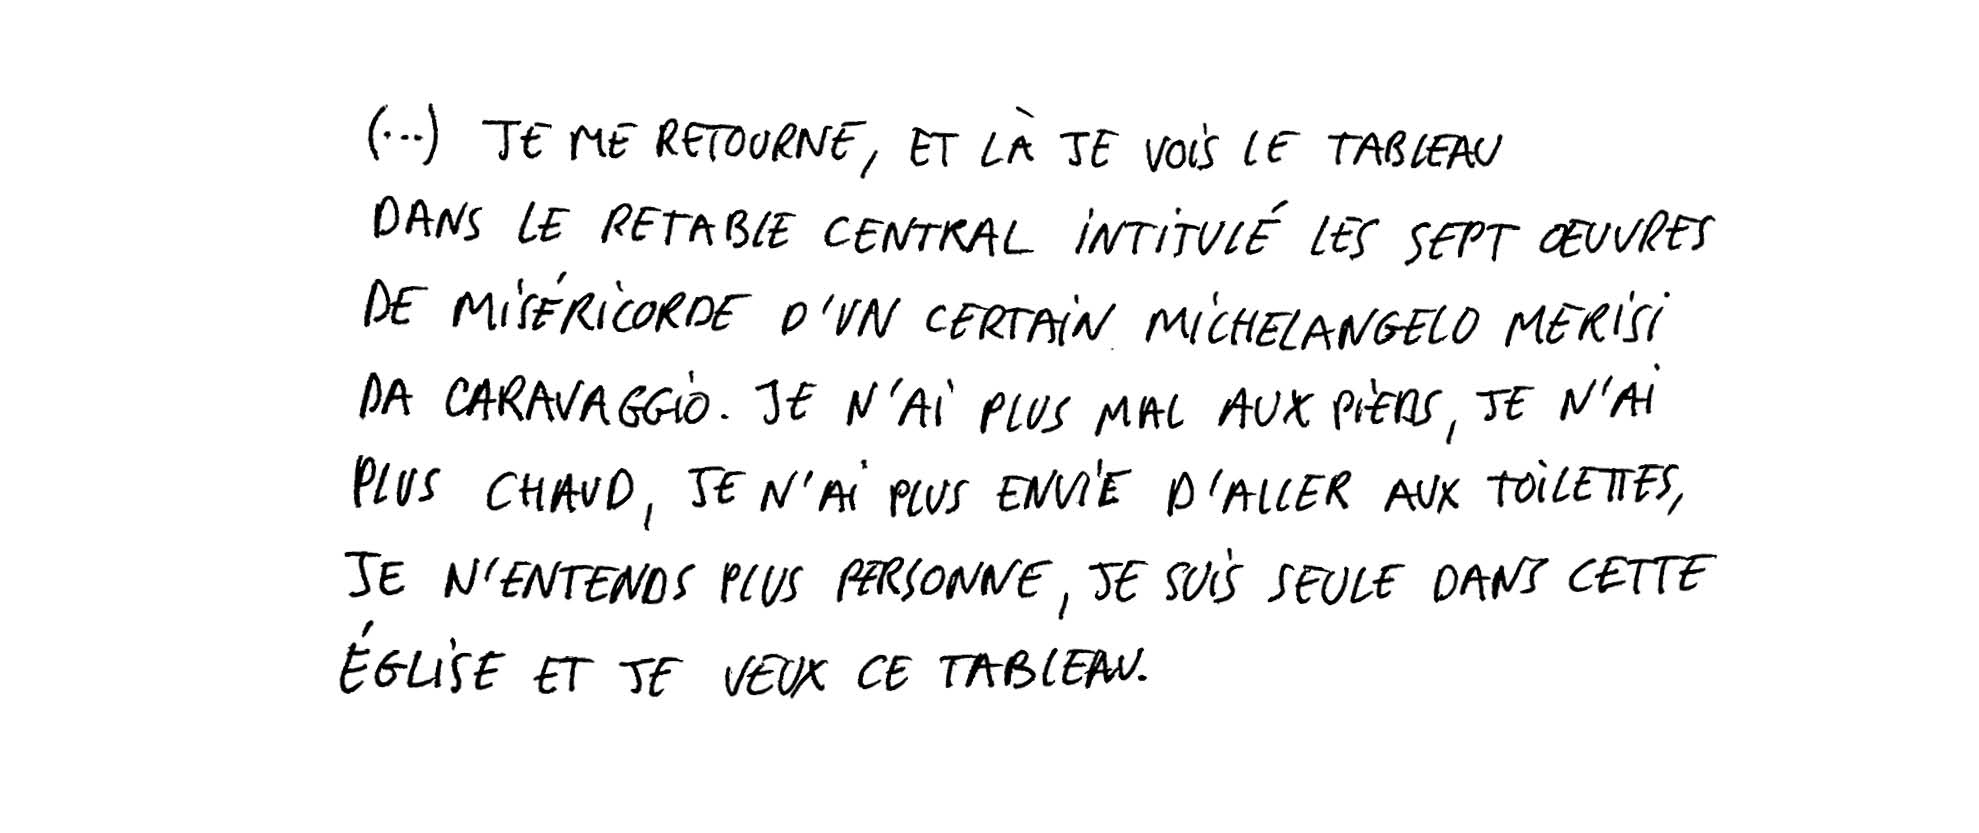 (...) JE ME RETOURNE, ET LÀ JE VOIS LE TABLEAU
DANS LE RETABLE CENTRAL INTITULÉ LES SEPT ŒUVRES
DE MISÉRICORDE D'UN CERTAIN MICHELANGELO MERISI
DA CARAVAGGIO. JE N'AI PLUS MAL AUX PIEDS, JE N'AI
PLUS CHAUD, JE N'AI PLUS ENVIE D'ALLER AUX TOILETTES,
JE N'ENTENDS PLUS PERSONNE, JE SUIS SEULE DANS CETTE
ÉGLISE ET JE VEUX CE TABLEAU.